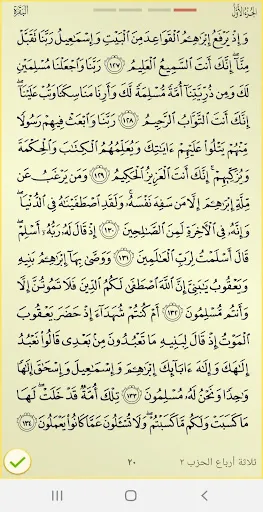 الجزء الأول البقرة
وَإِذْ يَرْفَعُ إِبْرَٰهِـۧمُ ٱلْقَوَاعِدَ مِنَ ٱلْبَيْتِ وَإِسْمَـٰعِيلُ رَبَّنَا تَقَبَّلْ
مِنَّآ ۖ إِنَّكَ أَنتَ ٱلسَّمِيعُ ٱلْعَلِيمُ ١٢٧ رَبَّنَا وَٱجْعَلْنَا مُسْلِمَيْنِ
لَكَ وَمِن ذُرِّيَّتِنَآ أُمَّةً مُّسْلِمَةً لَّكَ وَأَرِنَا مَنَاسِكَنَا وَتُبْ عَلَيْنَآ ۖ
إِنَّكَ أَنتَ ٱلتَّوَّابُ ٱلرَّحِيمُ ١٢٨ رَبَّنَا وَٱبْعَثْ فِيهِمْ رَسُولًا
مِّنْهُمْ يَتْلُوا۟ عَلَيْهِمْ ءَايَـٰتِكَ وَيُعَلِّمُهُمُ ٱلْكِتَـٰبَ وَٱلْحِكْمَةَ
وَيُزَكِّيهِمْ ۚ إِنَّكَ أَنتَ ٱلْعَزِيزُ ٱلْحَكِيمُ ١٢٩ وَمَن يَرْغَبُ عَن
مِّلَّةِ إِبْرَٰهِـۧمَ إِلَّا مَن سَفِهَ نَفْسَهُۥ ۚ وَلَقَدِ ٱصْطَفَيْنَـٰهُ فِى ٱلدُّنْيَا ۖ
وَإِنَّهُۥ فِى ٱلْـَٔاخِرَةِ لَمِنَ ٱلصَّـٰلِحِينَ ١٣٠ إِذْ قَالَ لَهُۥ رَبُّهُۥٓ أَسْلِمْ ۖ
قَالَ أَسْلَمْتُ لِرَبِّ ٱلْعَـٰلَمِينَ ١٣١ وَوَصَّىٰ بِهَآ إِبْرَٰهِـۧمُ بَنِيهِ
وَيَعْقُوبُ يَـٰبَنِىَّ إِنَّ ٱللَّهَ ٱصْطَفَىٰ لَكُمُ ٱلدِّينَ فَلَا تَمُوتُنَّ إِلَّا
وَأَنتُم مُّسْلِمُونَ ١٣٢ أَمْ كُنتُمْ شُهَدَآءَ إِذْ حَضَرَ يَعْقُوبَ
ٱلْمَوْتُ إِذْ قَالَ لِبَنِيهِ مَا تَعْبُدُونَ مِنۢ بَعْدِى قَالُوا۟ نَعْبُدُ
إِلَـٰهَكَ وَإِلَـٰهَ ءَابَآئِكَ إِبْرَٰهِـۧمَ وَإِسْمَـٰعِيلَ وَإِسْحَـٰقَ إِلَـٰهًا
وَٰحِدًا وَنَحْنُ لَهُۥ مُسْلِمُونَ ١٣٣ تِلْكَ أُمَّةٌ قَدْ خَلَتْ ۖ لَهَا
مَا كَسَبَتْ وَلَكُم مَّا كَسَبْتُمْ ۖ وَلَا تُسْـَٔلُونَ عَمَّا كَانُوا۟ يَعْمَلُونَ ١٣٤
ثلاثة أرباع الحزب ٢ ٢٠